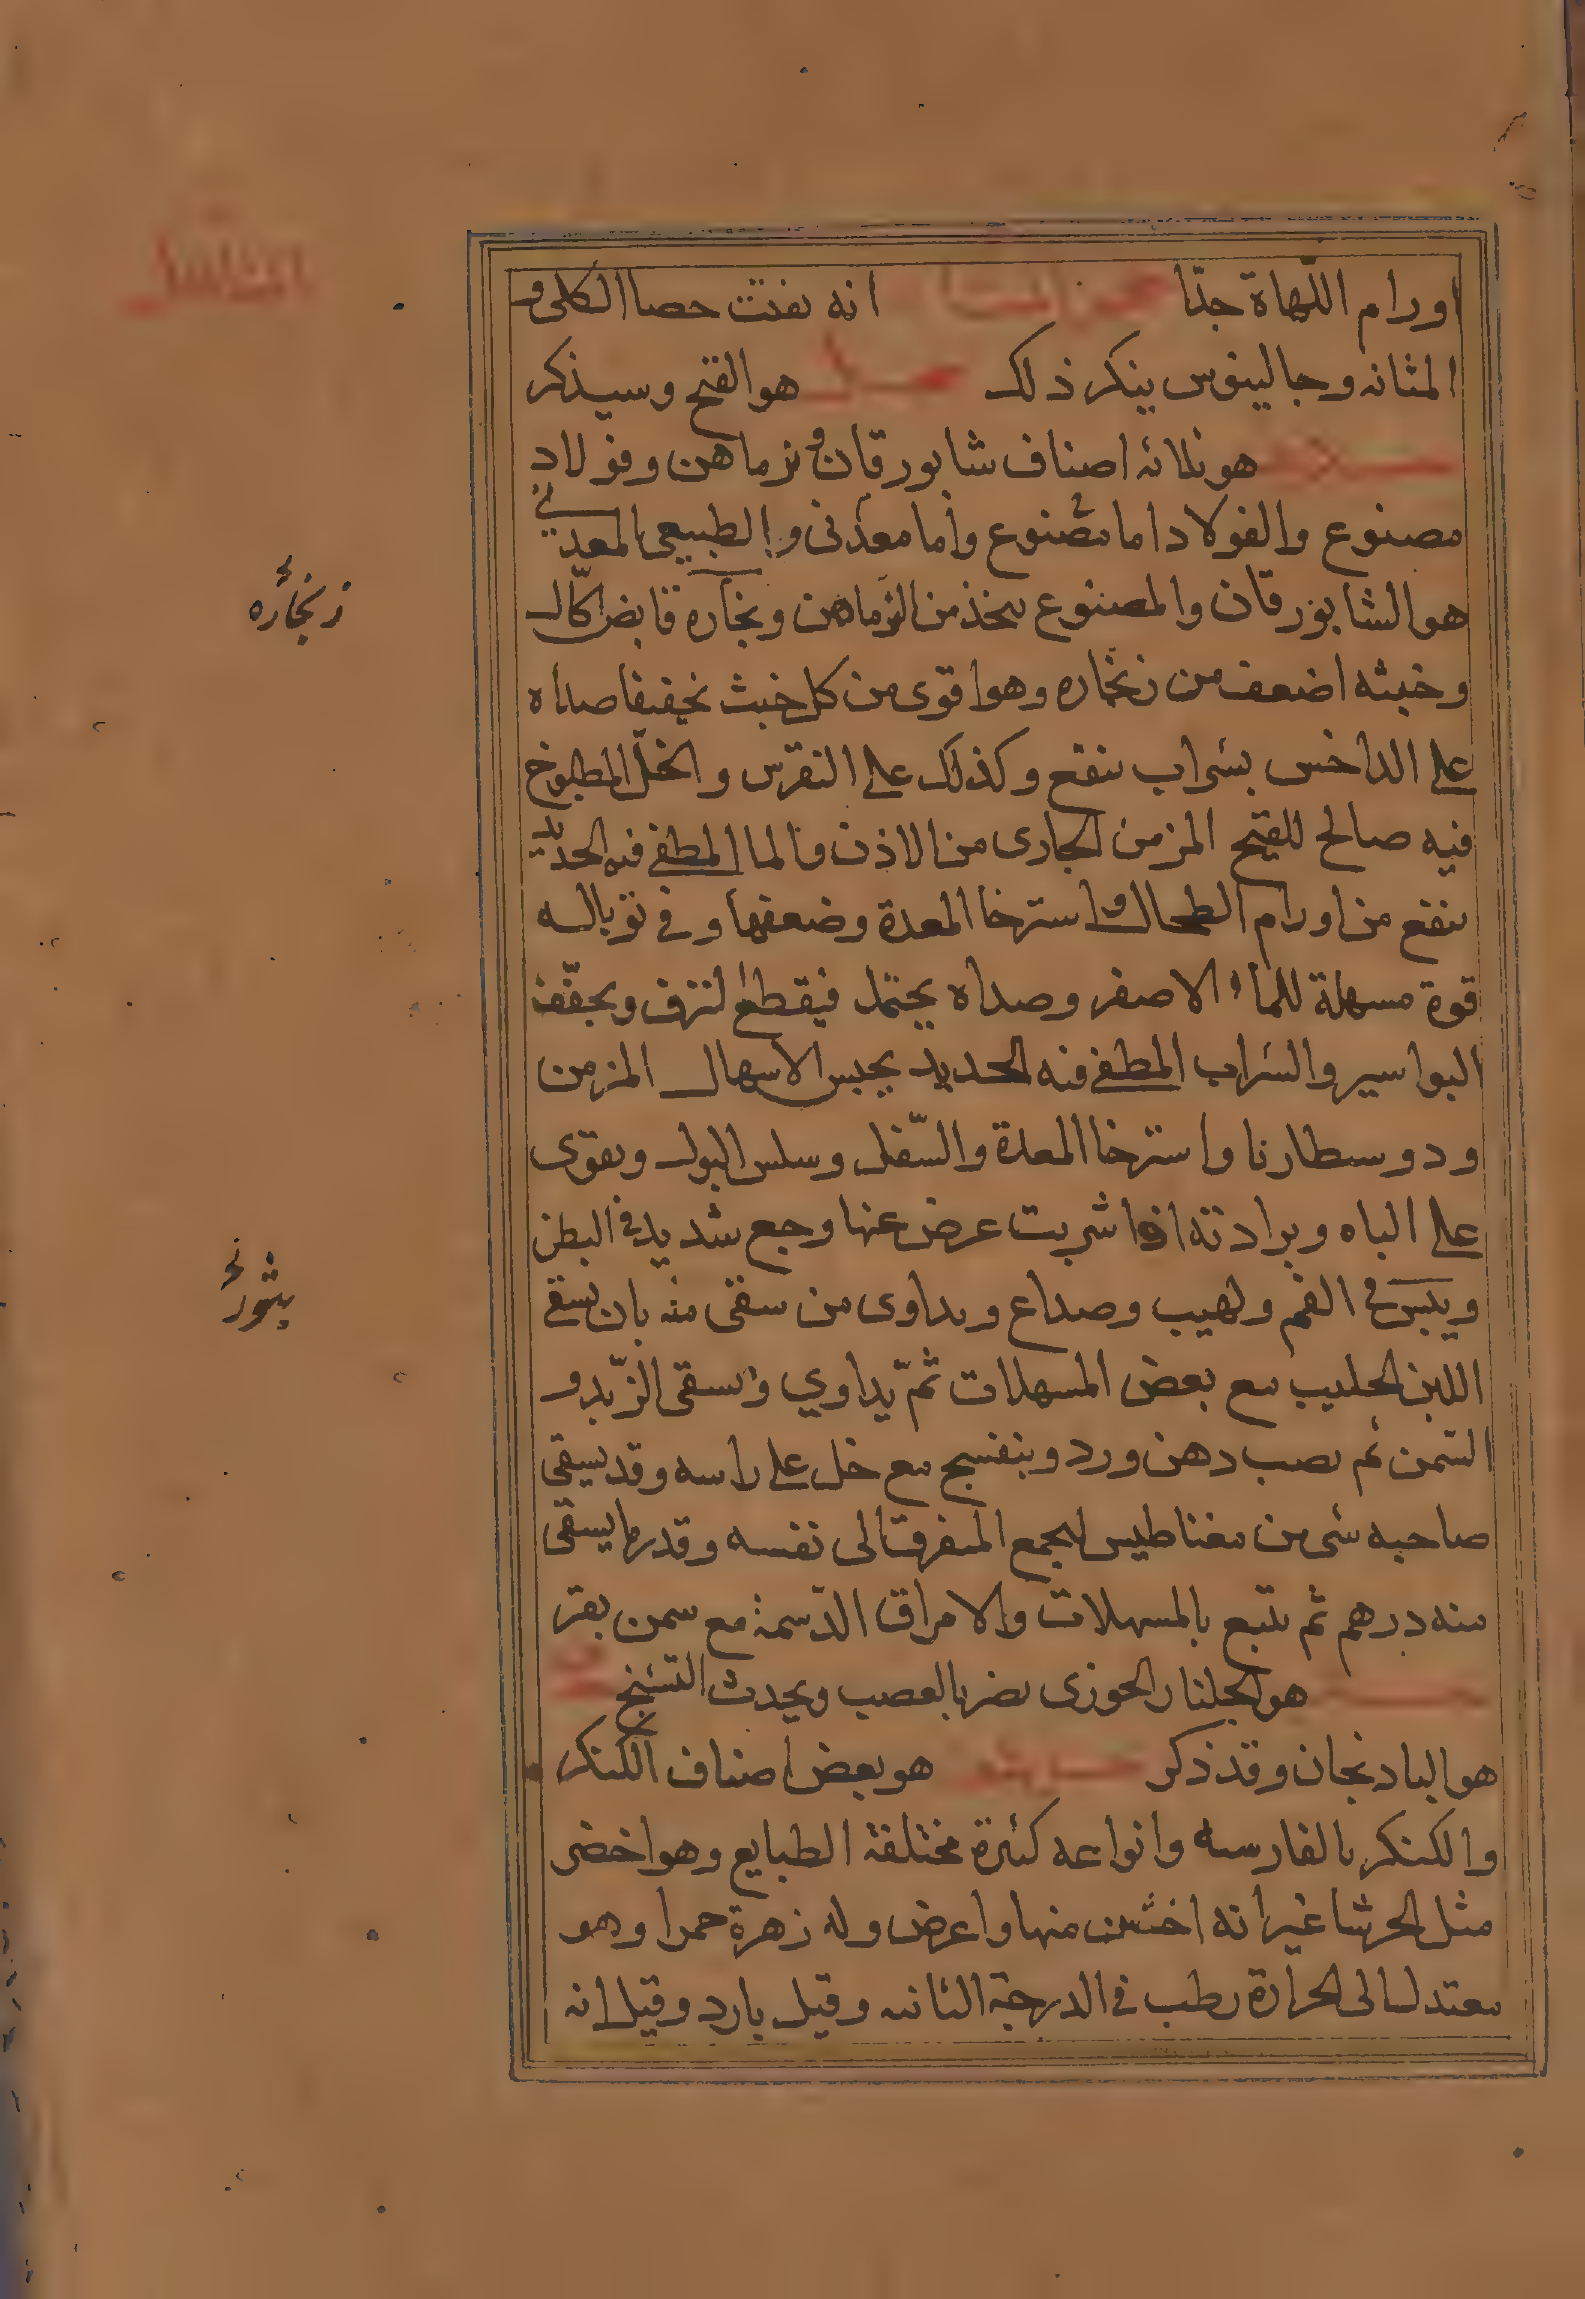 اورام اللهاة جدّا انه يفتت حصا الكلى و
المثانه وجالينوس ينكر ذلك هو القبج وسيذكر
هو ثلاثه اصناف شابورقان و نرماهن وفولاد
مصنوع والفولاد اما مصنوع وأما معدنى والطبيعى المعدنى
هو الشابورقان والمصنوع يتخذ من النرماهن وبخاره قابض اكّال
وخبثه اضعف من زنجاره وهو اقوى من كل خبث تجفيفا صداه
على الداخس بشراب ينفع وكذلك على النقرس والخلّ المطبوخ
فيه صالح للقيح المزمن الجارى من الاذن والما المطفى فيه الحديد
ينفع من اورام الطحال و استرخا المعدة وضعفها وفى توباله
قوة مسهلة للماء الاصفر وصداه يحتمل فيقطع النزف ويجفّف
البواسير والشراب المطفى فيه الحديد يحبس الاسهال المزمن
ودوسطاريا واسترخا المعدة والسّفل وسلس البول ويقوى
على الباه وبرادته اذا شربت عرض عنها وجع شديد فى البطن
ويبس فى الفم ولهيب وصداع ويداوى من سقى منه بان يسقى
اللبن الحليب مع بعض المسهلات ثمّ يداوي ويسقى الزّبد و
السمن ثم يصب دهن ورد وبنفسج مع خل على راسه وقد يسقى
صاحبه شى من مغناطيس ليجمع المتفرق الى نفسه وقدر ما يسقى
منه درهم ثم يتبع بالمسهلات والامراق الدّسمة مع سمن بقر
هو الجلنار الجوزى يضر بالعصب ويحدث التشنج
هو البادنجان وقد ذكر هو بعض اصناف الكنكر
والكنكر بالفارسيه وانواعه كثيرة مختلفة الطبايع وهو اخضر
مثل الحرشا غير انه اخشن منها واعرض وله زهرة حمرا وهو
معتدل الى الحرارة رطب فى الدرجة الثانيه وقيل بارد وقيل انه
زنجاره